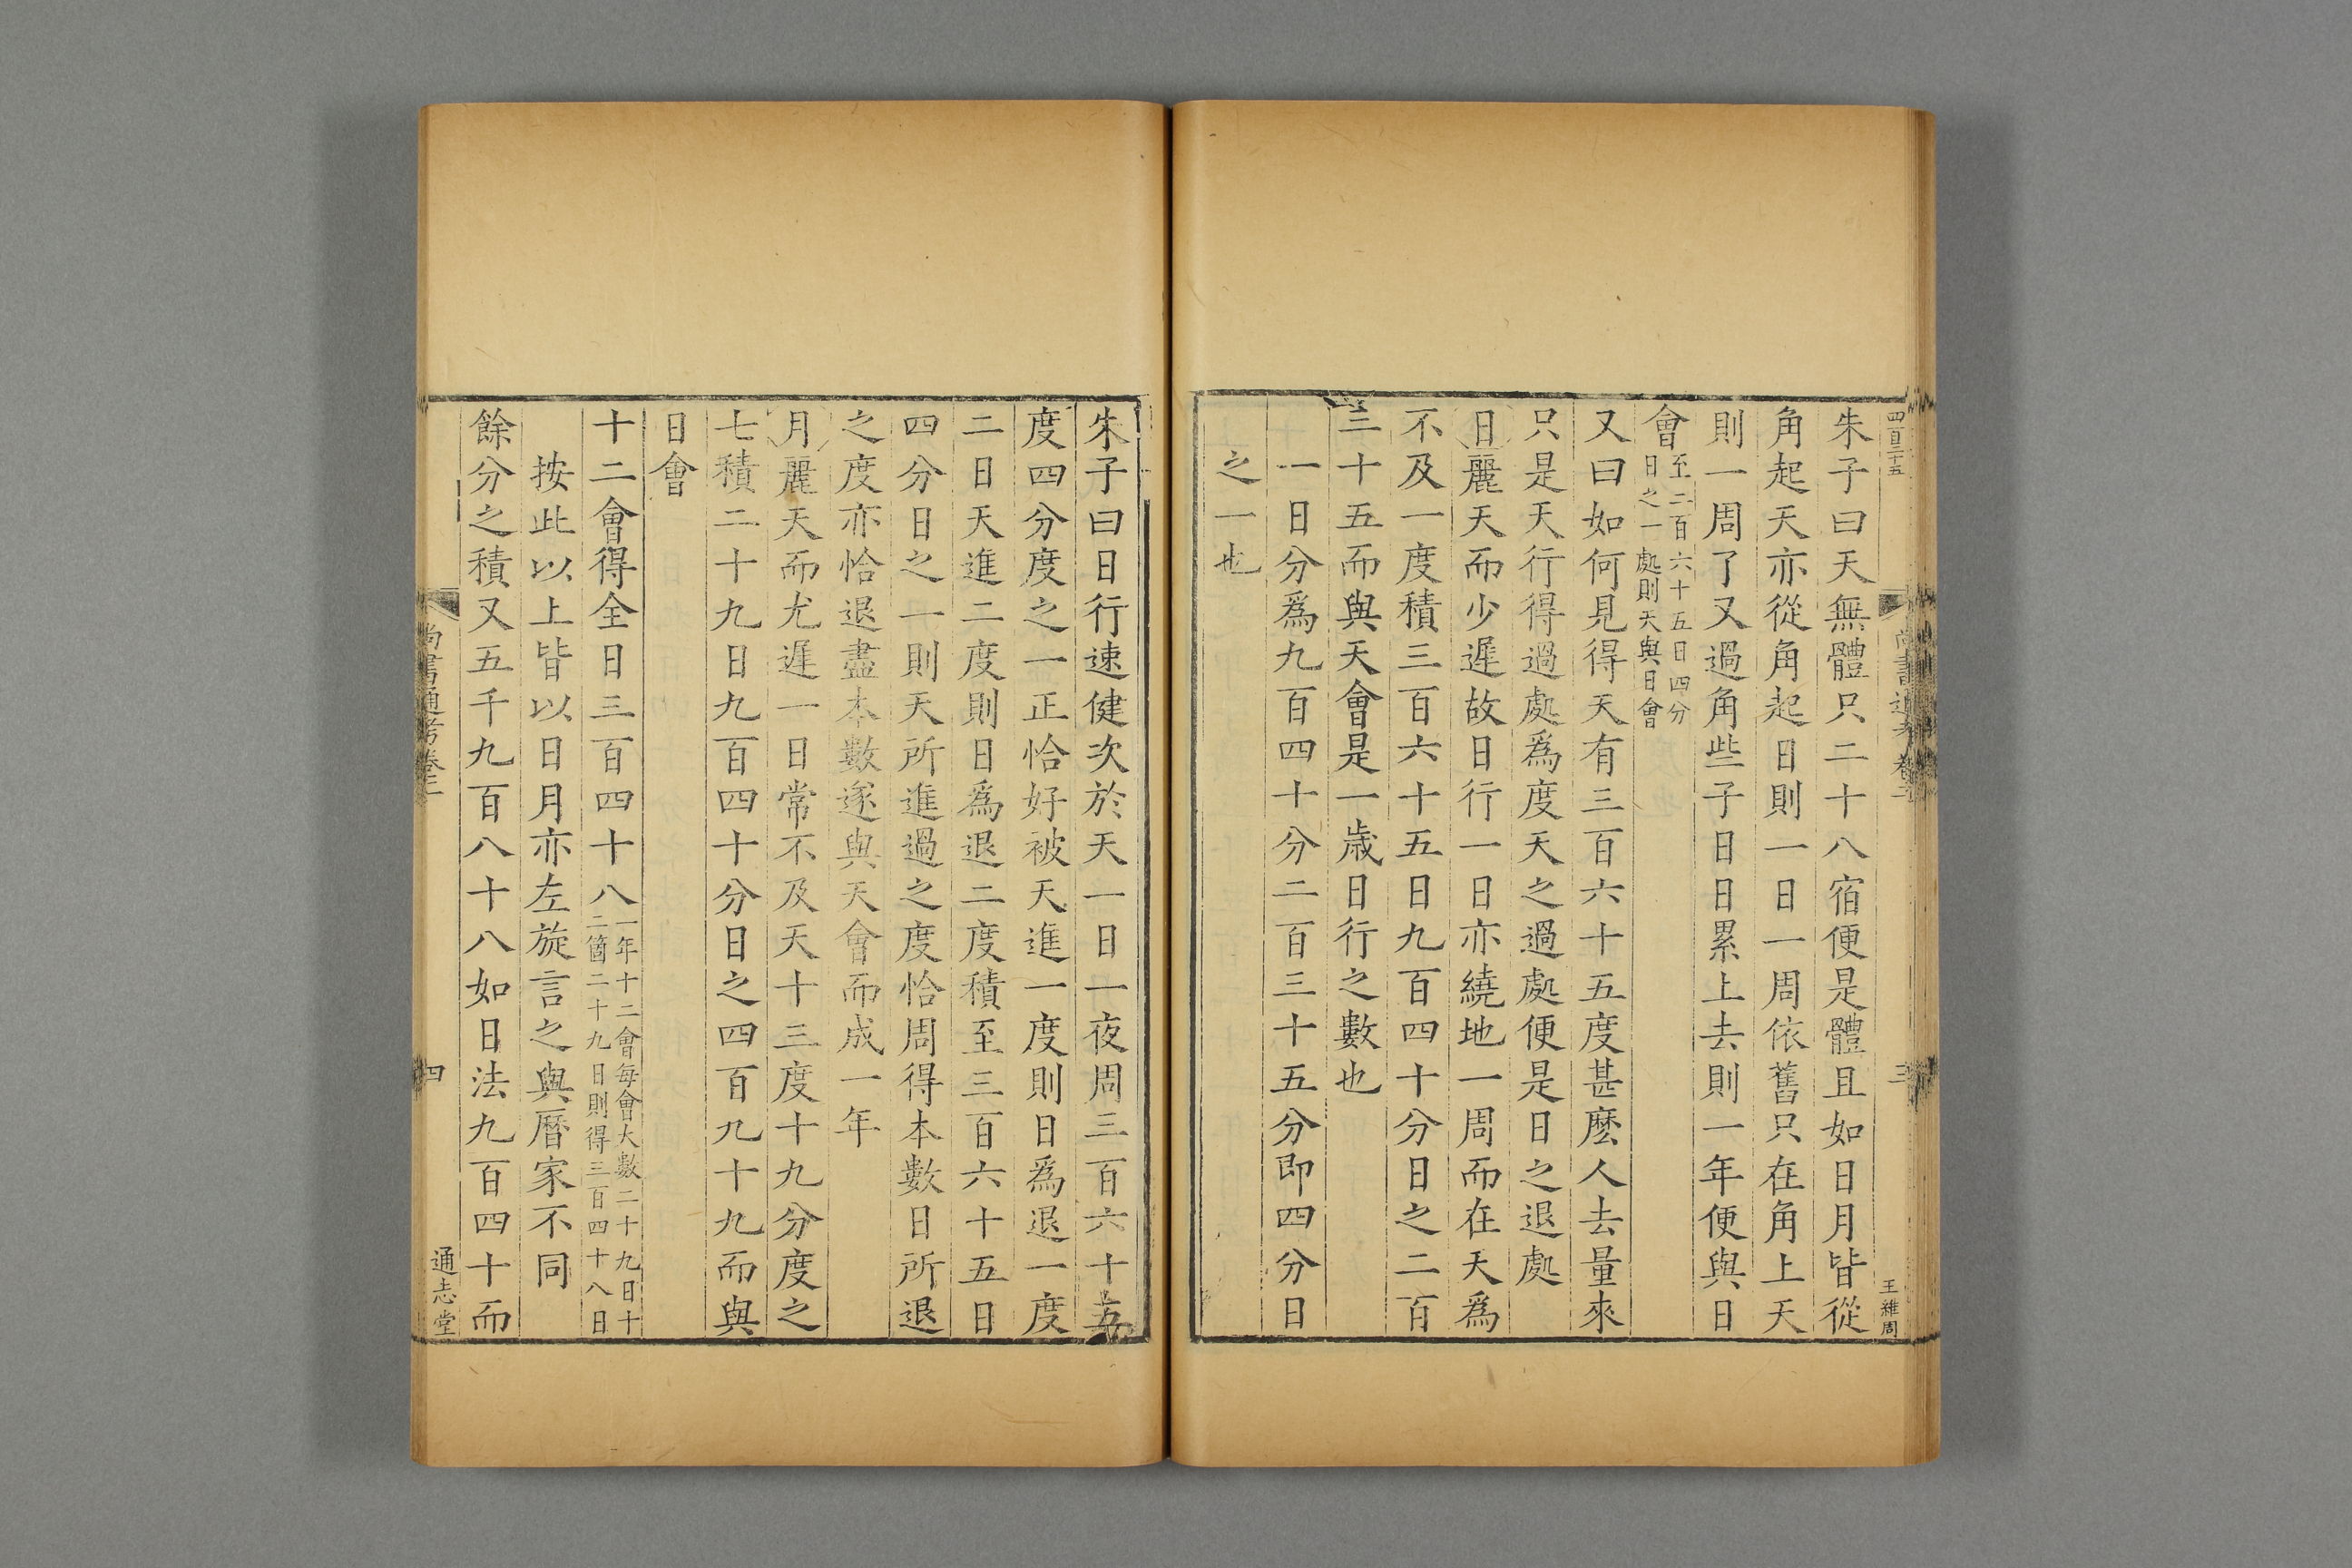 四百三十五
尚書通考卷二
三
王維周
朱子曰天無體只二十八宿便是體且如日月皆從
角起天亦從角起日則一日一周依舊只在角上天
則一周了又過角些子日日累上去則一年便與日
會至二百六十五日四分
日之一處則天與日會
又曰如何見得天有三百六十五度甚麽人去量來
只是天行得過處爲度天之過處便是日之退處
日麗天而少遲故日行一日亦繞地一周而在天爲
不及一度積三百六十五日九百四十分日之二百
三十五而與天會是一歲日行之數也
一日分爲九百四十分二百三十五分即四分日
之一也
朱子曰日行速健次於天一日一夜周三百六十五
度四分度之一正恰好被天進一度則日爲退一度
二日天進二度則日爲退二度積至三百六十五日
四分日之一則天所進過之度恰周得本數日所退
之度亦恰退盡本數遂與天會而成一年
月麗天而尤遲一日常不及天十三度十九分度之
七積二十九日九百四十分日之四百九十九而與
日會
十二會得全日三百四十八一年十二會每會大數二十九日十
二箇二十九日則得三百四十八日
按此以上皆以日月亦左旋言之與曆家不同
餘分之積又五千九百八十八如日法九百四十而
尚書通考卷二
四
通志堂